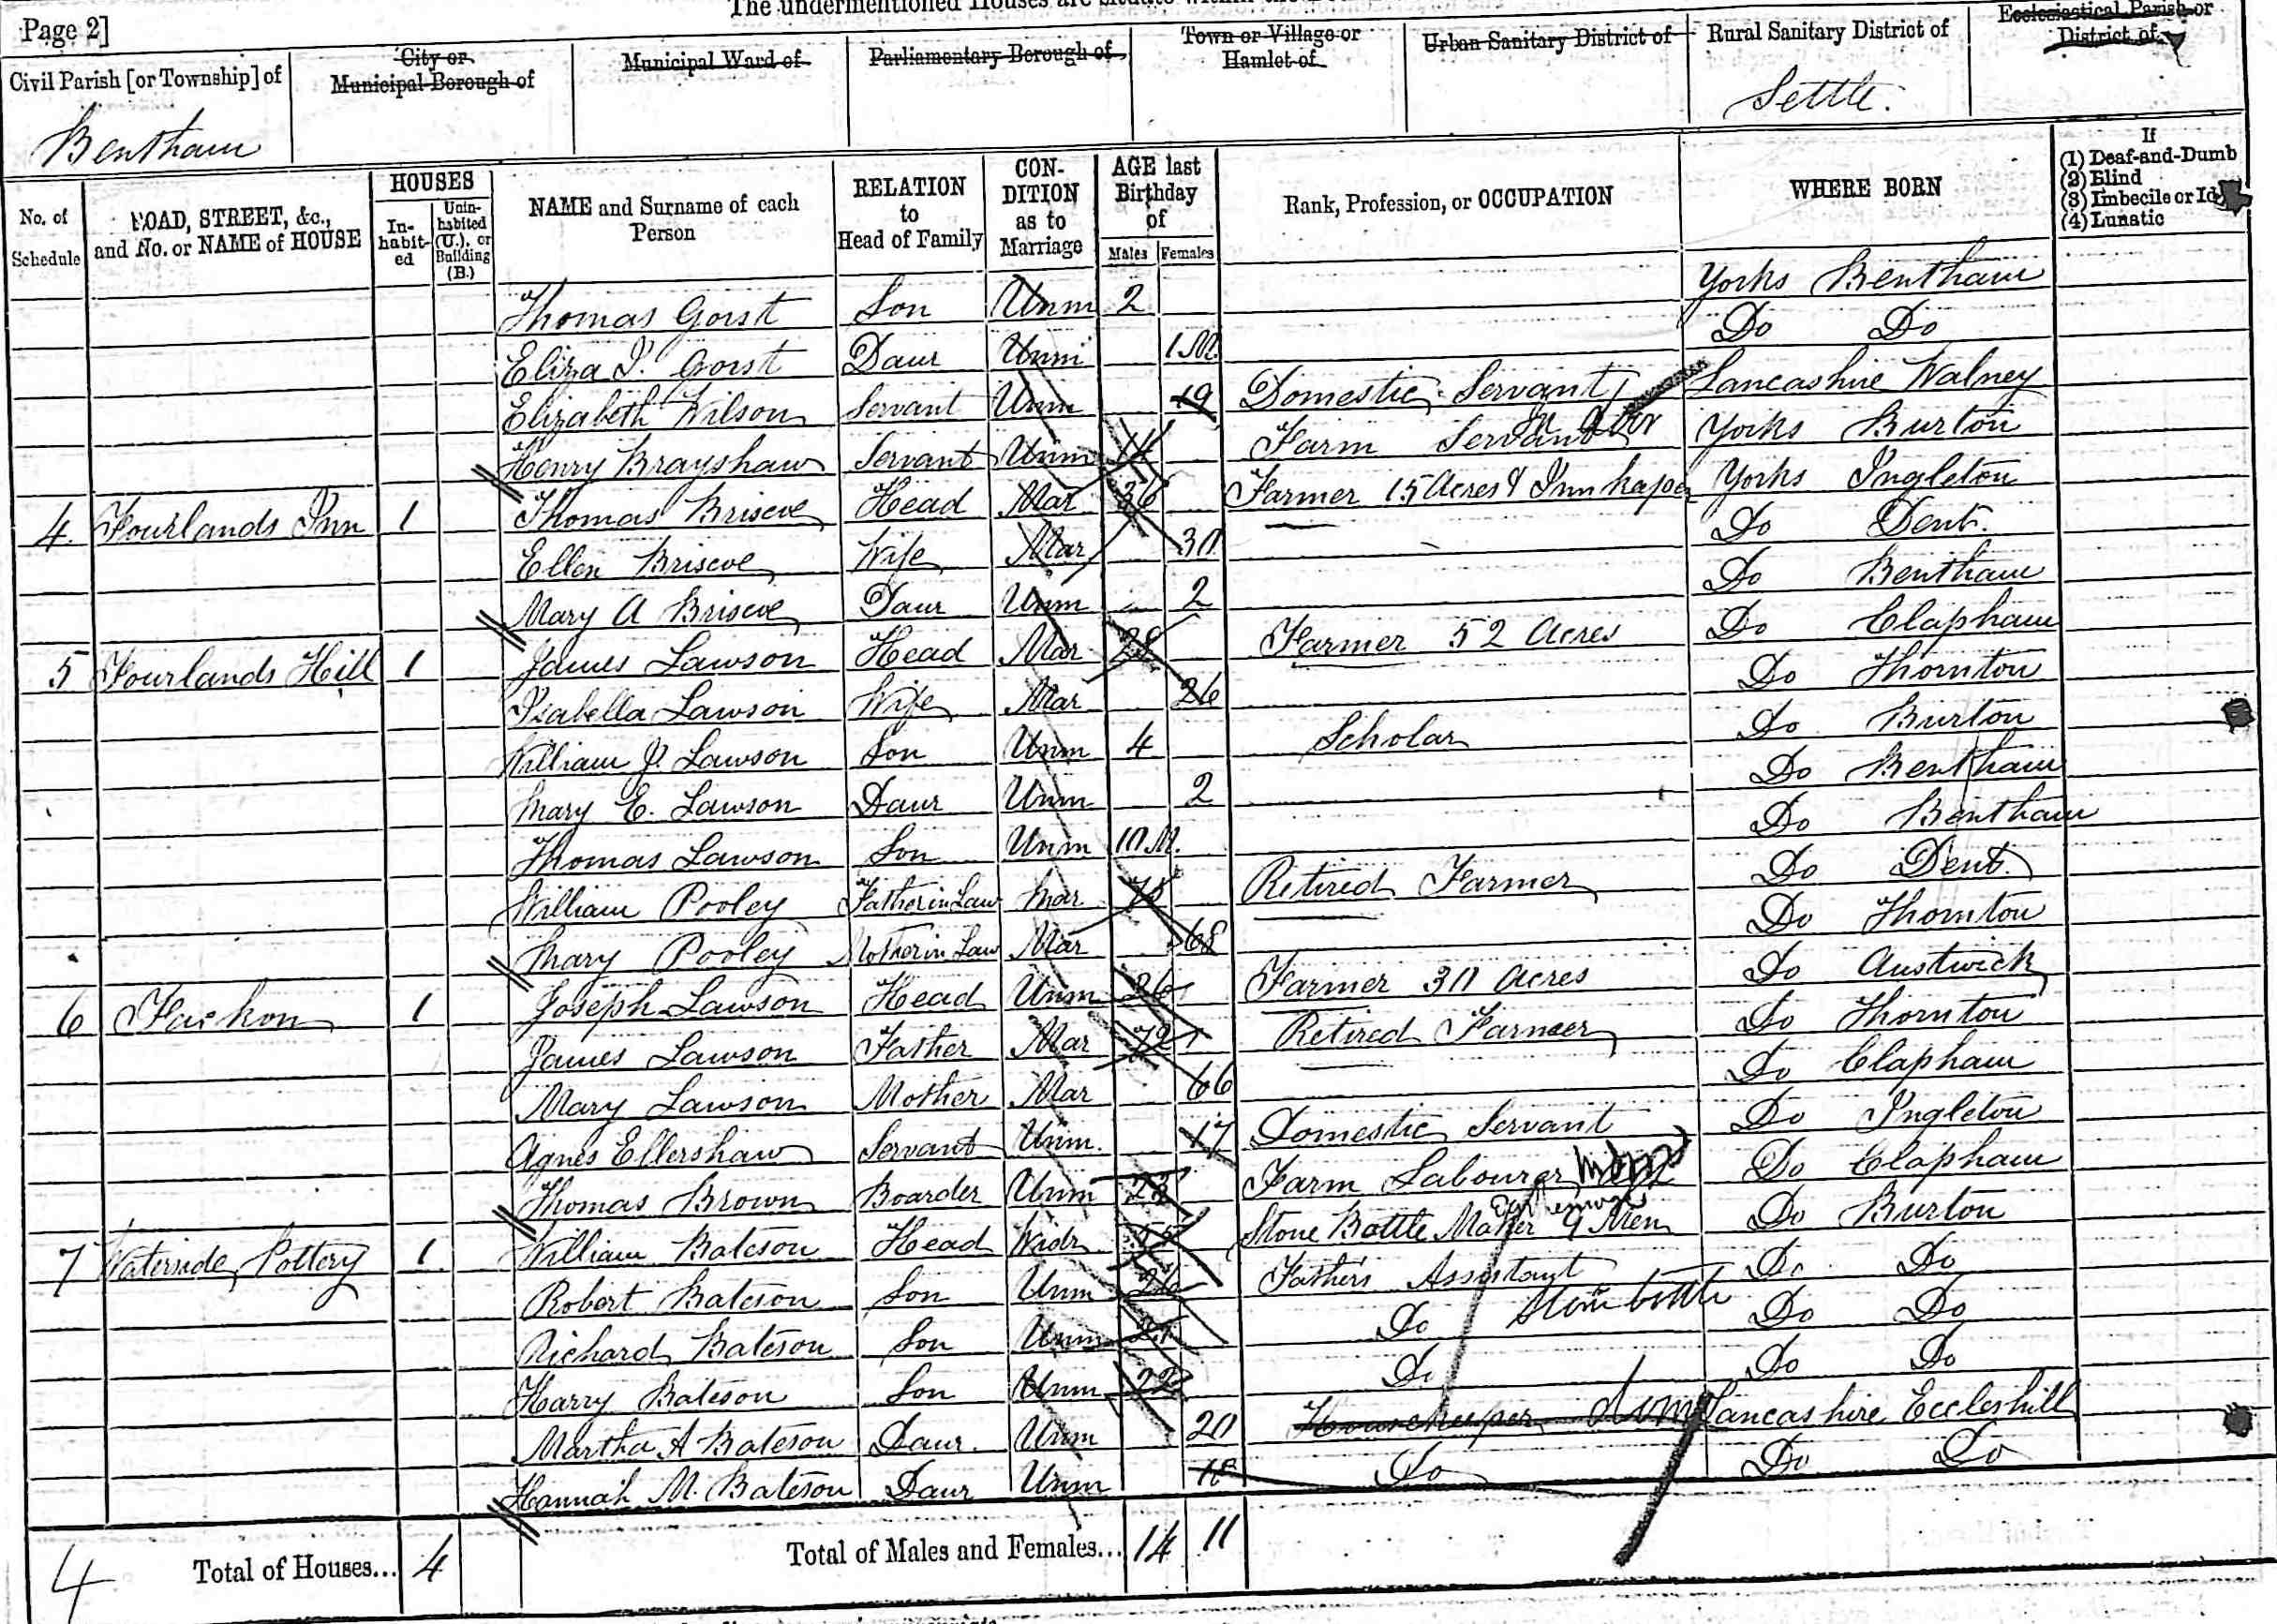 The undermentioned Houses are situate within the
Page 2]
Civil Parish [or Township] of
City or Municipal Borough of
Municipal Ward of
Parliamentary Borough of
Town or Village or Hamlet of
Urban Sanitary District of
Rural Sanitary District of
Ecclesiastical Parish or District of
Bentham Settle.
No. of Schedule
ROAD, STREET, &c., and No. or NAME of HOUSE
HOUSES
In-habit-ed
Unin-habited (U.), or Building (B.)
NAME and Surname of each Person
RELATION to Head of Family
CON-DITION as to Marriage
AGE last Birthday of
Males Females
Rank, Profession, or OCCUPATION
WHERE BORN
If
(1) Deaf-and-Dumb
(2) Blind
(3) Imbecile or Id
(4) Lunatic
Thomas Gorst Son Unm 2 Yorks Bentham
Eliza J. Gorst Daur Unm 1 M. Do Do
Elizabeth Wilson Servant Unm 19 Domestic Servant Lancashire Walney
Henry Brayshaw Servant Unm Farm Servant Yorks Burton
4 Fourlands Inn 1 Thomas Briscoe Head Mar 36 Farmer 15 Acres & Innkeper Yorks Ingleton
Ellen Briscoe Wife Mar 30 Do Dent.
Mary A Briscoe Daur Unm 2 Do Bentham
5 Fourlands Hill 1 James Lawson Head Mar 28 Farmer 52 Acres Do Clapham
Isabella Lawson Wife Mar 26 Do Thornton
William J. Lawson Son Unm 4 Scholar Do Burton
Mary E. Lawson Daur Unm 2 Do Bentham
Thomas Lawson Son Unm 10 M. Do Bentham
William Pooley Father in Law Mar 75 Retired Farmer Do Dent.
Mary Pooley Mother in Law Mar 68 Do Thornton
6 1 Joseph Lawson Head Unm 26 Farmer 30 Acres Do Austwick
James Lawson Father Mar 72 Retired Farmer Do Thornton
Mary Lawson Mother Mar 66 Do Clapham
Agnes Ellershaw Servant Unm 17 Domestic Servant Do Ingleton
Thomas Brown Boarder Unm 23 Farm Labourer Do Clapham
Earthenware
7 Waterside Pottery 1 William Bateson Head Widr Stone Bottle Maker 9 Men Do Burton
Robert Bateson Son Unm 26 Father's Assistant Do Do
Richard Bateson Son Unm Do Stone bottle Do Do
Harry Bateson Son Unm 22 Do Do Do
Martha A Bateson Daur. Unm 20 Housekeeper Dom Lancashire Eccleshill
Hannah M. Bateson Daur Unm 18 Do Do Do
4 Total of Houses... 4 Total of Males and Females... 14 11